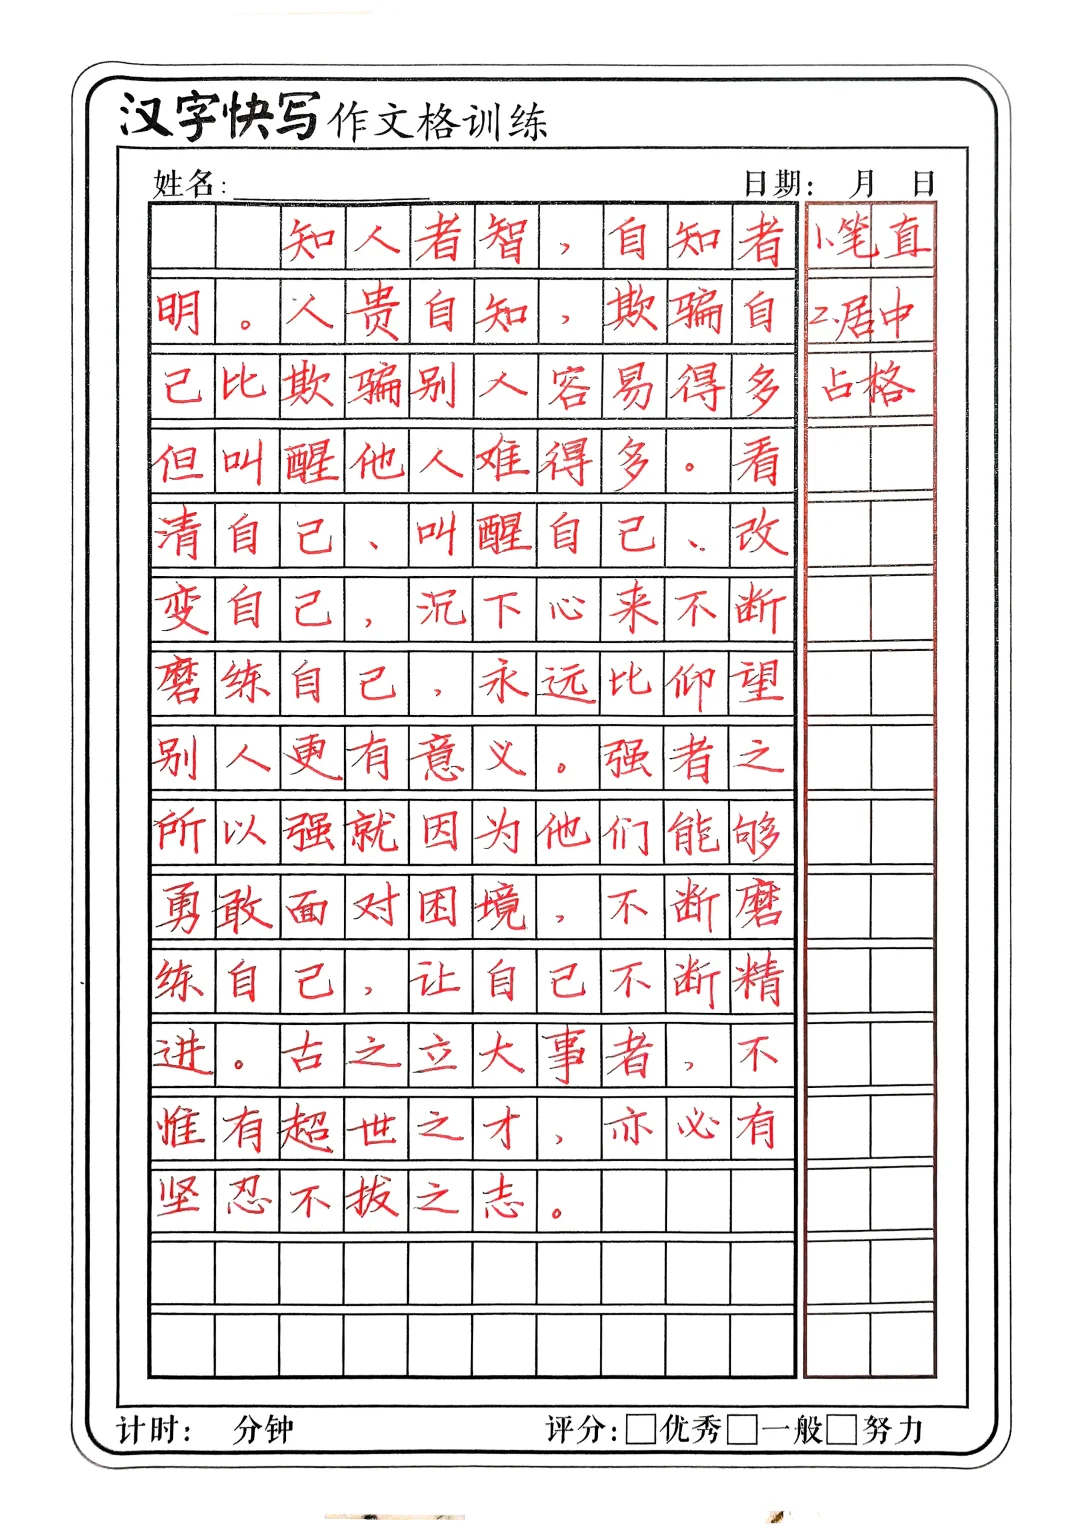 汉字快写作文格训练
姓名: 日期: 月 日
知人者智,自知者
明。人贵自知,欺骗自
己比欺骗别人容易得多
但叫醒他人难得多。看
清自己、叫醒自己、改
变自己,沉下心来不断
磨练自己,永远比仰望
别人更有意义。强者之
所以强就因为他们能够
勇敢面对困境,不断磨
练自己,让自己不断精
进。古之立大事者,不
惟有超世之才,亦必有
坚忍不拔之志。
1、笔直
2、居中
占格
计时: 分钟 评分:□优秀□一般□努力